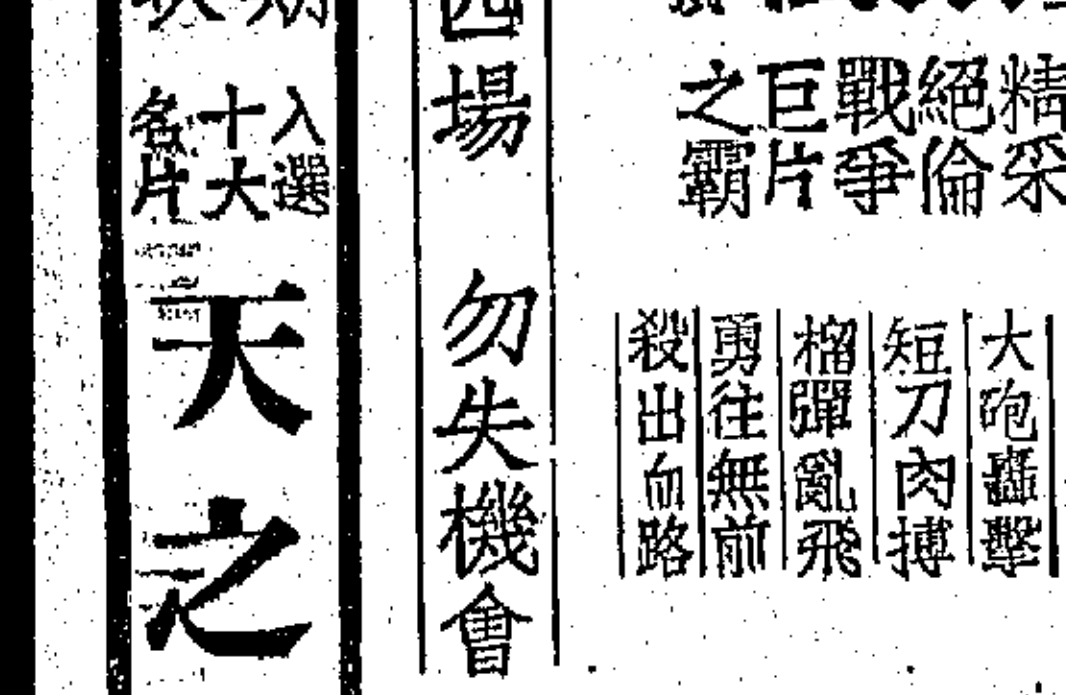 精采
絕倫
戰爭
巨片
之霸
大砲轟擊
短刀肉搏
榴彈亂飛
勇往無前
殺出血路
場 勿失機會
入選
十大
名片
天之